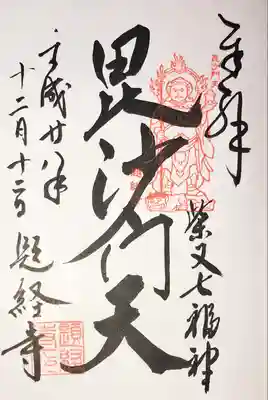 奉拝
柴又七福神
毘沙門天
平成廿八年
十二月十二日
題経寺